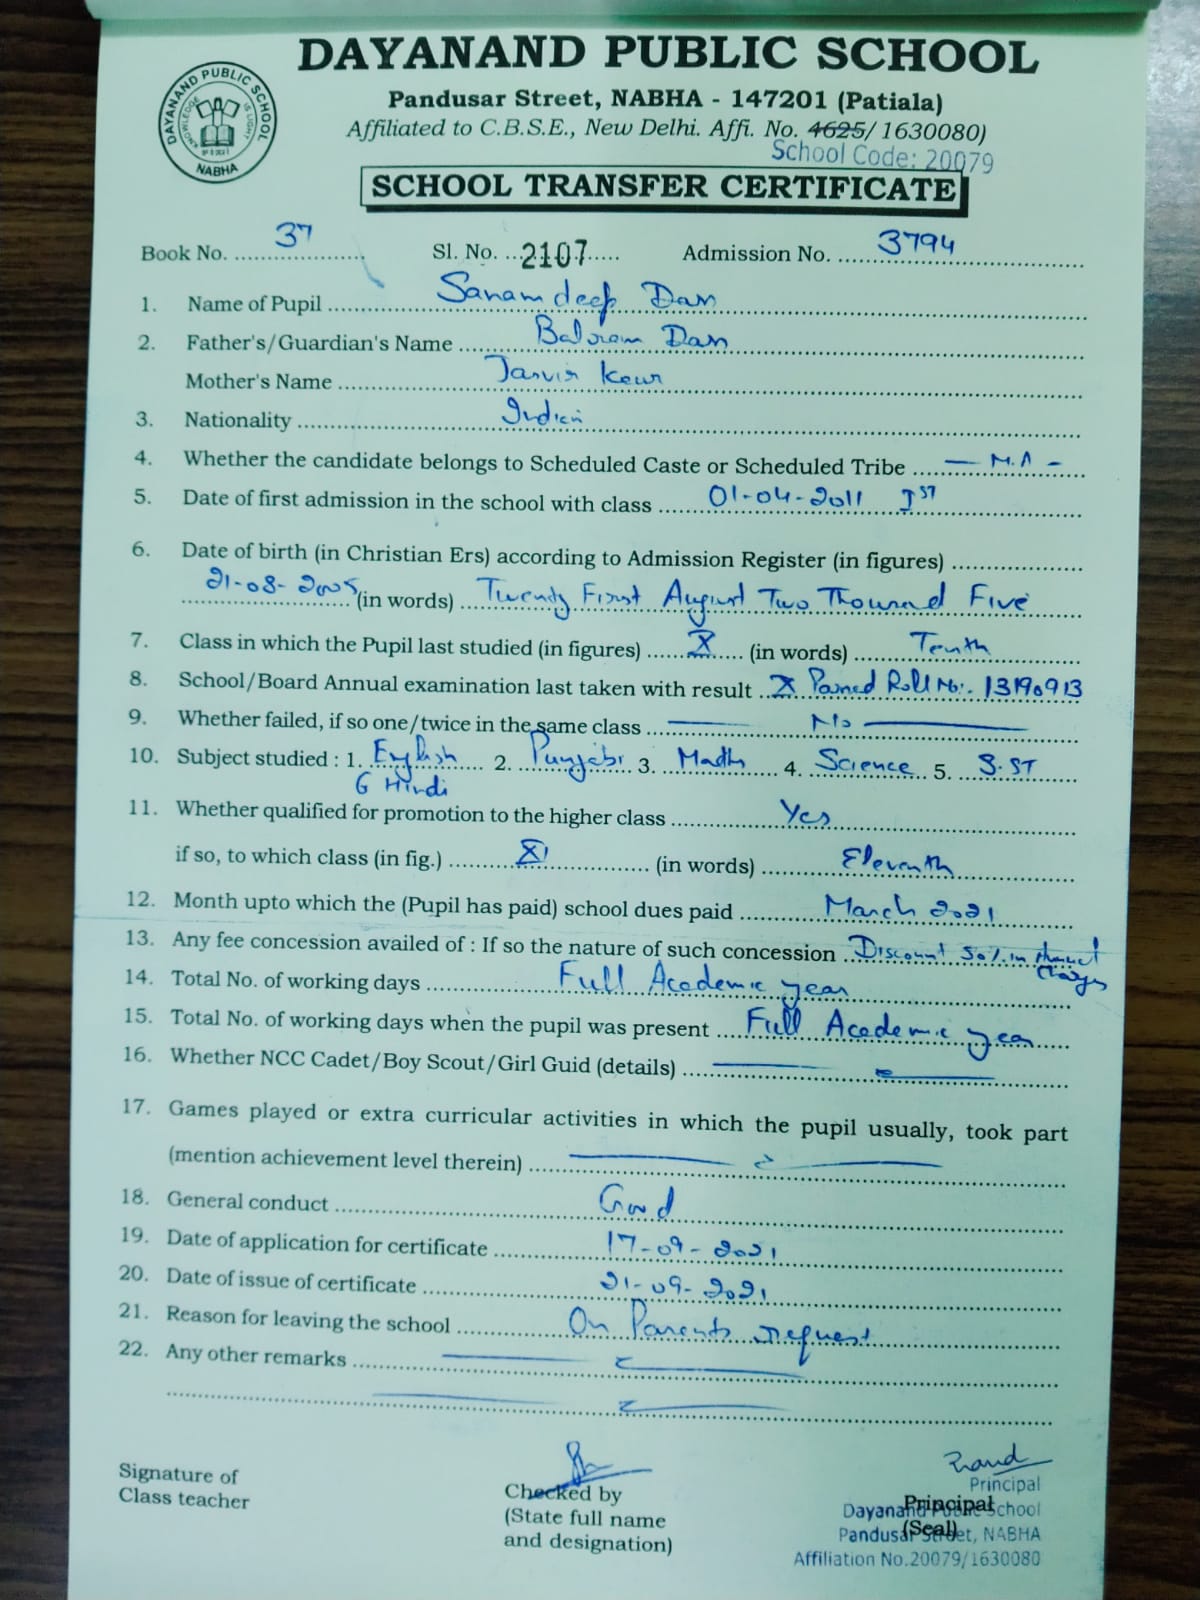 DAYANAND PUBLIC SCHOOL
DAYANAND PUBLIC SCHOOL
KNOWLEDGE IS LIGHT
NABHA
Pandusar Street, NABHA - 147201 (Patiala)
Affiliated to C.B.S.E., New Delhi. Affi. No. 4625/1630080)
School Code: 20079
SCHOOL TRANSFER CERTIFICATE
Book No. 37 Sl. No. 2107 Admission No. 3794
1. Name of Pupil Sanamdeep Dass
2. Father's/Guardian's Name Balram Dass
Mother's Name Jasvir Kaur
3. Nationality Indian
4. Whether the candidate belongs to Scheduled Caste or Scheduled Tribe — N.A —
5. Date of first admission in the school with class 01-04-2011 Ist
6. Date of birth (in Christian Ers) according to Admission Register (in figures)
21-08-2005 (in words) Twenty First August Two Thousand Five
7. Class in which the Pupil last studied (in figures) X (in words) Tenth
8. School/Board Annual examination last taken with result X Passed Roll No:. 13190913
9. Whether failed, if so one/twice in the same class — No —
10. Subject studied : 1. English 2. Punjabi 3. Math 4. Science 5. S.ST
6 Hindi
11. Whether qualified for promotion to the higher class Yes
if so, to which class (in fig.) XI (in words) Eleventh
12. Month upto which the (Pupil has paid) school dues paid March 2021
13. Any fee concession availed of : If so the nature of such concession Discount 50% in Annual
Charges
14. Total No. of working days Full Academic year
15. Total No. of working days when the pupil was present Full Academic year
16. Whether NCC Cadet/Boy Scout/Girl Guid (details)
17. Games played or extra curricular activities in which the pupil usually, took part
(mention achievement level therein)
18. General conduct Good
19. Date of application for certificate 17-09-2021
20. Date of issue of certificate 21-09-2021
21. Reason for leaving the school On Parents request
22. Any other remarks
Signature of
Class teacher
Checked by
(State full name
and designation)
Principal
Principal
(Seal)
Dayanand Public School
Pandusar Street, NABHA
Affiliation No.20079/1630080